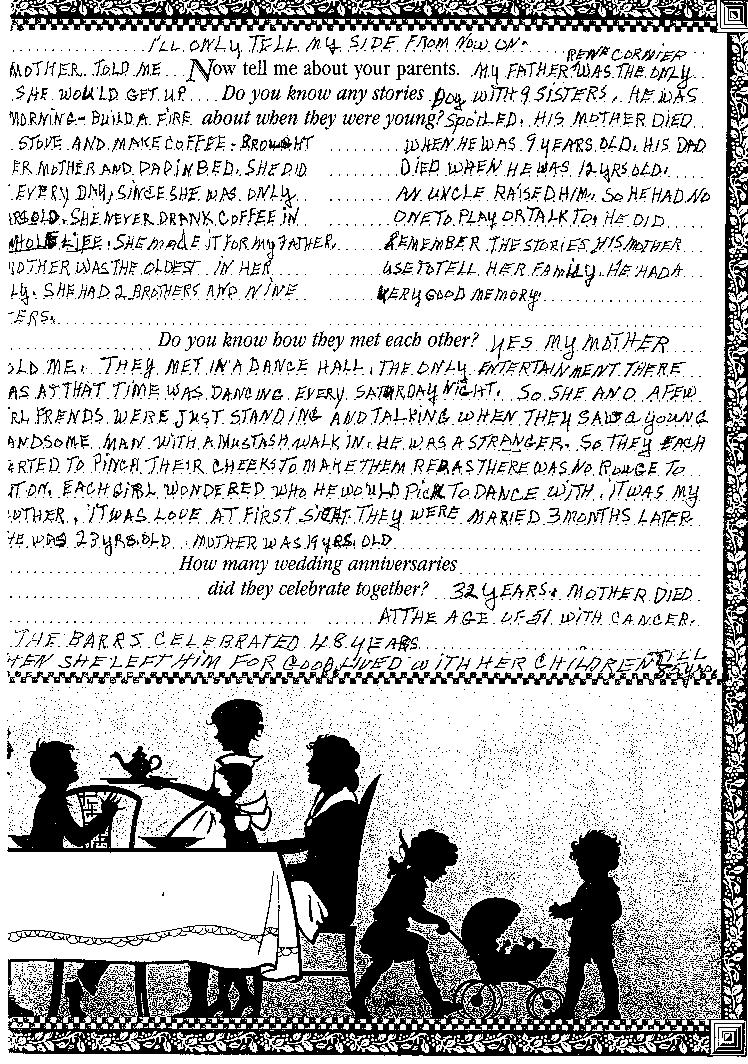 I'LL ONLY TELL MY SIDE FROM NOW ON.
RENE CORNIER
MOTHER. TOLD ME Now tell me about your parents. MY FATHER WAS THE ONLY
SHE WOULD GET UP Do you know any stories Boy WITH 9 SISTERS. HE WAS
MORNING - BUILD A FIRE about when they were young? SPOILED. HIS MOTHER DIED
STOVE AND MAKE COFFEE. BROUGHT WHEN HE WAS 9 YEARS OLD. HIS DAD
ER MOTHER AND DAD IN BED. SHE DID DIED WHEN HE WAS 12 YRS OLD.
EVERY DAY, SINCE SHE WAS ONLY AN UNCLE RAISED HIM. SO HE HAD NO
RS OLD. SHE NEVER DRANK COFFEE IN ONE TO PLAY OR TALK TO. HE DID
WHOLE LIFE. SHE MADE IT FOR MY FATHER. REMEMBER THE STORIES HIS MOTHER
MOTHER WAS THE OLDEST IN HER USE TO TELL HER FAMILY. HE HAD A
LY. SHE HAD 2 BROTHERS AND NINE VERY GOOD MEMORY.
TERS.
Do you know how they met each other? YES MY MOTHER
OLD ME. THEY MET IN A DANCE HALL. THE ONLY ENTERTAINMENT THERE
AS AT THAT TIME WAS DANCING EVERY SATURDAY NIGHT. SO SHE AND A FEW
RL FRENDS WERE JUST STANDING AND TALKING WHEN THEY SAW A YOUNG
ANDSOME MAN WITH A MUSTASH WALK IN. HE WAS A STRANGER. SO THEY EACH
ARTED TO PINCH THEIR CHEEKS TO MAKE THEM RED AS THERE WAS NO ROUGE TO
UT ON. EACH GIRL WONDERED WHO HE WOULD PICK TO DANCE WITH. IT WAS MY
OTHER. IT WAS LOVE AT FIRST SIGHT. THEY WERE MARIED 3 MONTHS LATER
HE WAS 23 YRS. OLD MOTHER WAS 19 YRS. OLD
How many wedding anniversaries
did they celebrate together? 32 YEARS. MOTHER DIED
AT THE AGE OF 51 WITH CANCER.
THE BARRS CELEBRATED 48 YEARS
HEN SHE LEFT HIM FOR GOOD, LIVED WITH HER CHILDREN TILL